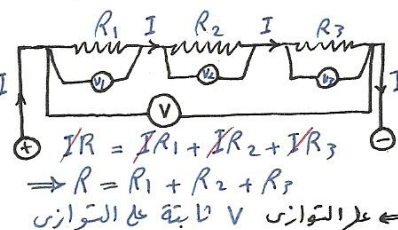 R1 I R2 I R3
I V1 V2 V3 I
V
+ −
IR = IR1 + IR2 + IR3
⇒ R = R1 + R2 + R3
⇐ على التوازى V ثابتة على التوازى